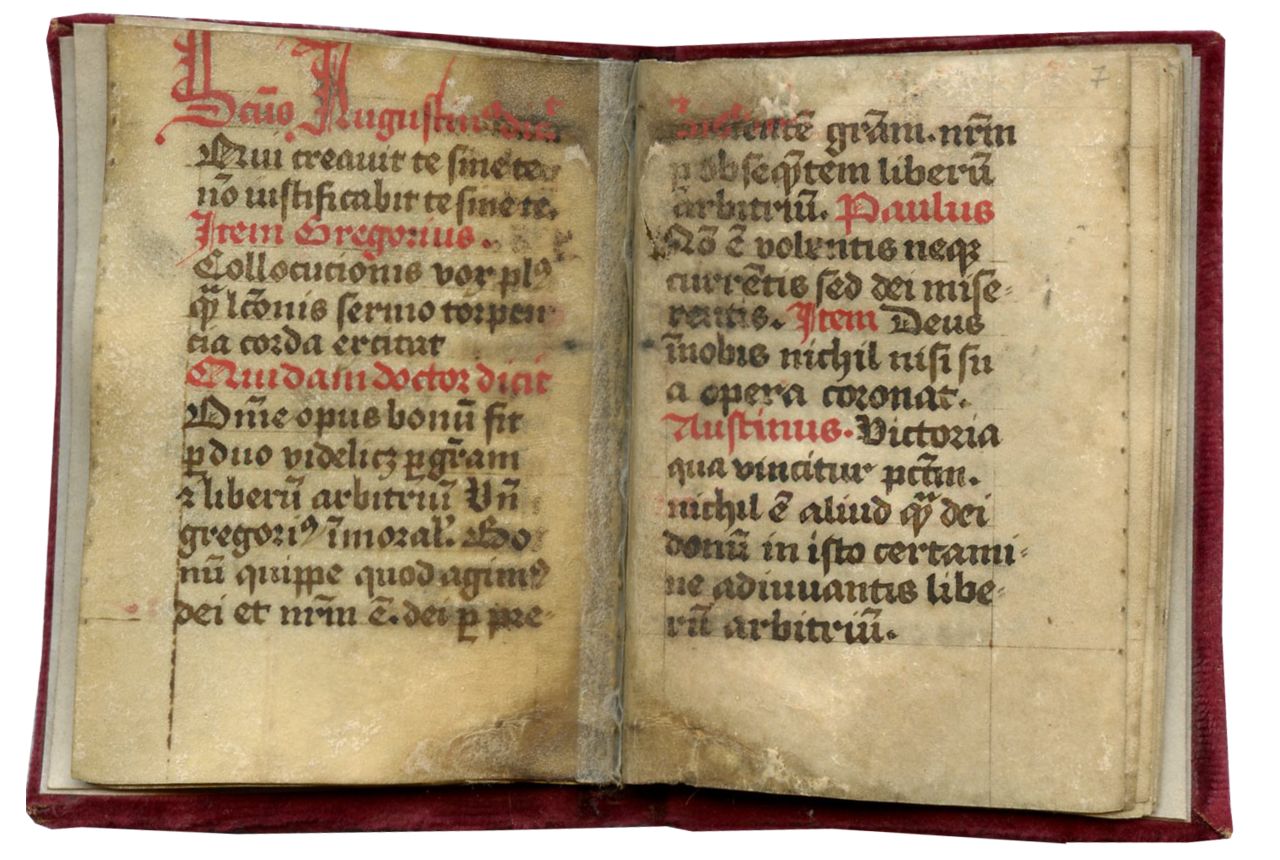 Scūs Augustinus dic̄
Qui creavit te sine te
nō iustificabit te sine te.
Item Gregorius.
Collocucionis vox plꝰ
qᷓ lc̄onis sermo torpen
cia corda excitat
Quidam doctor dicit
Om̄e opus bonū fit
ꝑ duo videlicꝫ ꝑ gr̄am
⁊ liberū arbitriū Vn̄
gregoriꝰ ī moral̕. Bo
nū quippe quod agimꝰ
dei et nr̄m ē. dei ꝑ pre-
7
gr̄am. nr̄m
ꝑ obseqn̄tem liberū
arbitriū. Paulus
Nō ē volentis neqꝫ
currētis sed dei mise-
rentis. Item Deus
ī nobis nichil nisi su
a opera coronat.
Austinus. Victoria
qua vincitur pctm̄.
nichil ē aliud qᷓ dei
donū in isto certami-
ne adiuvantis libe-
rū arbitriū.